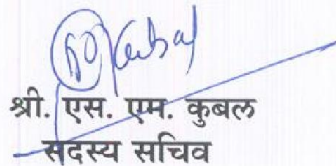 श्री. एस. एम. कुबल
सदस्य सचिव